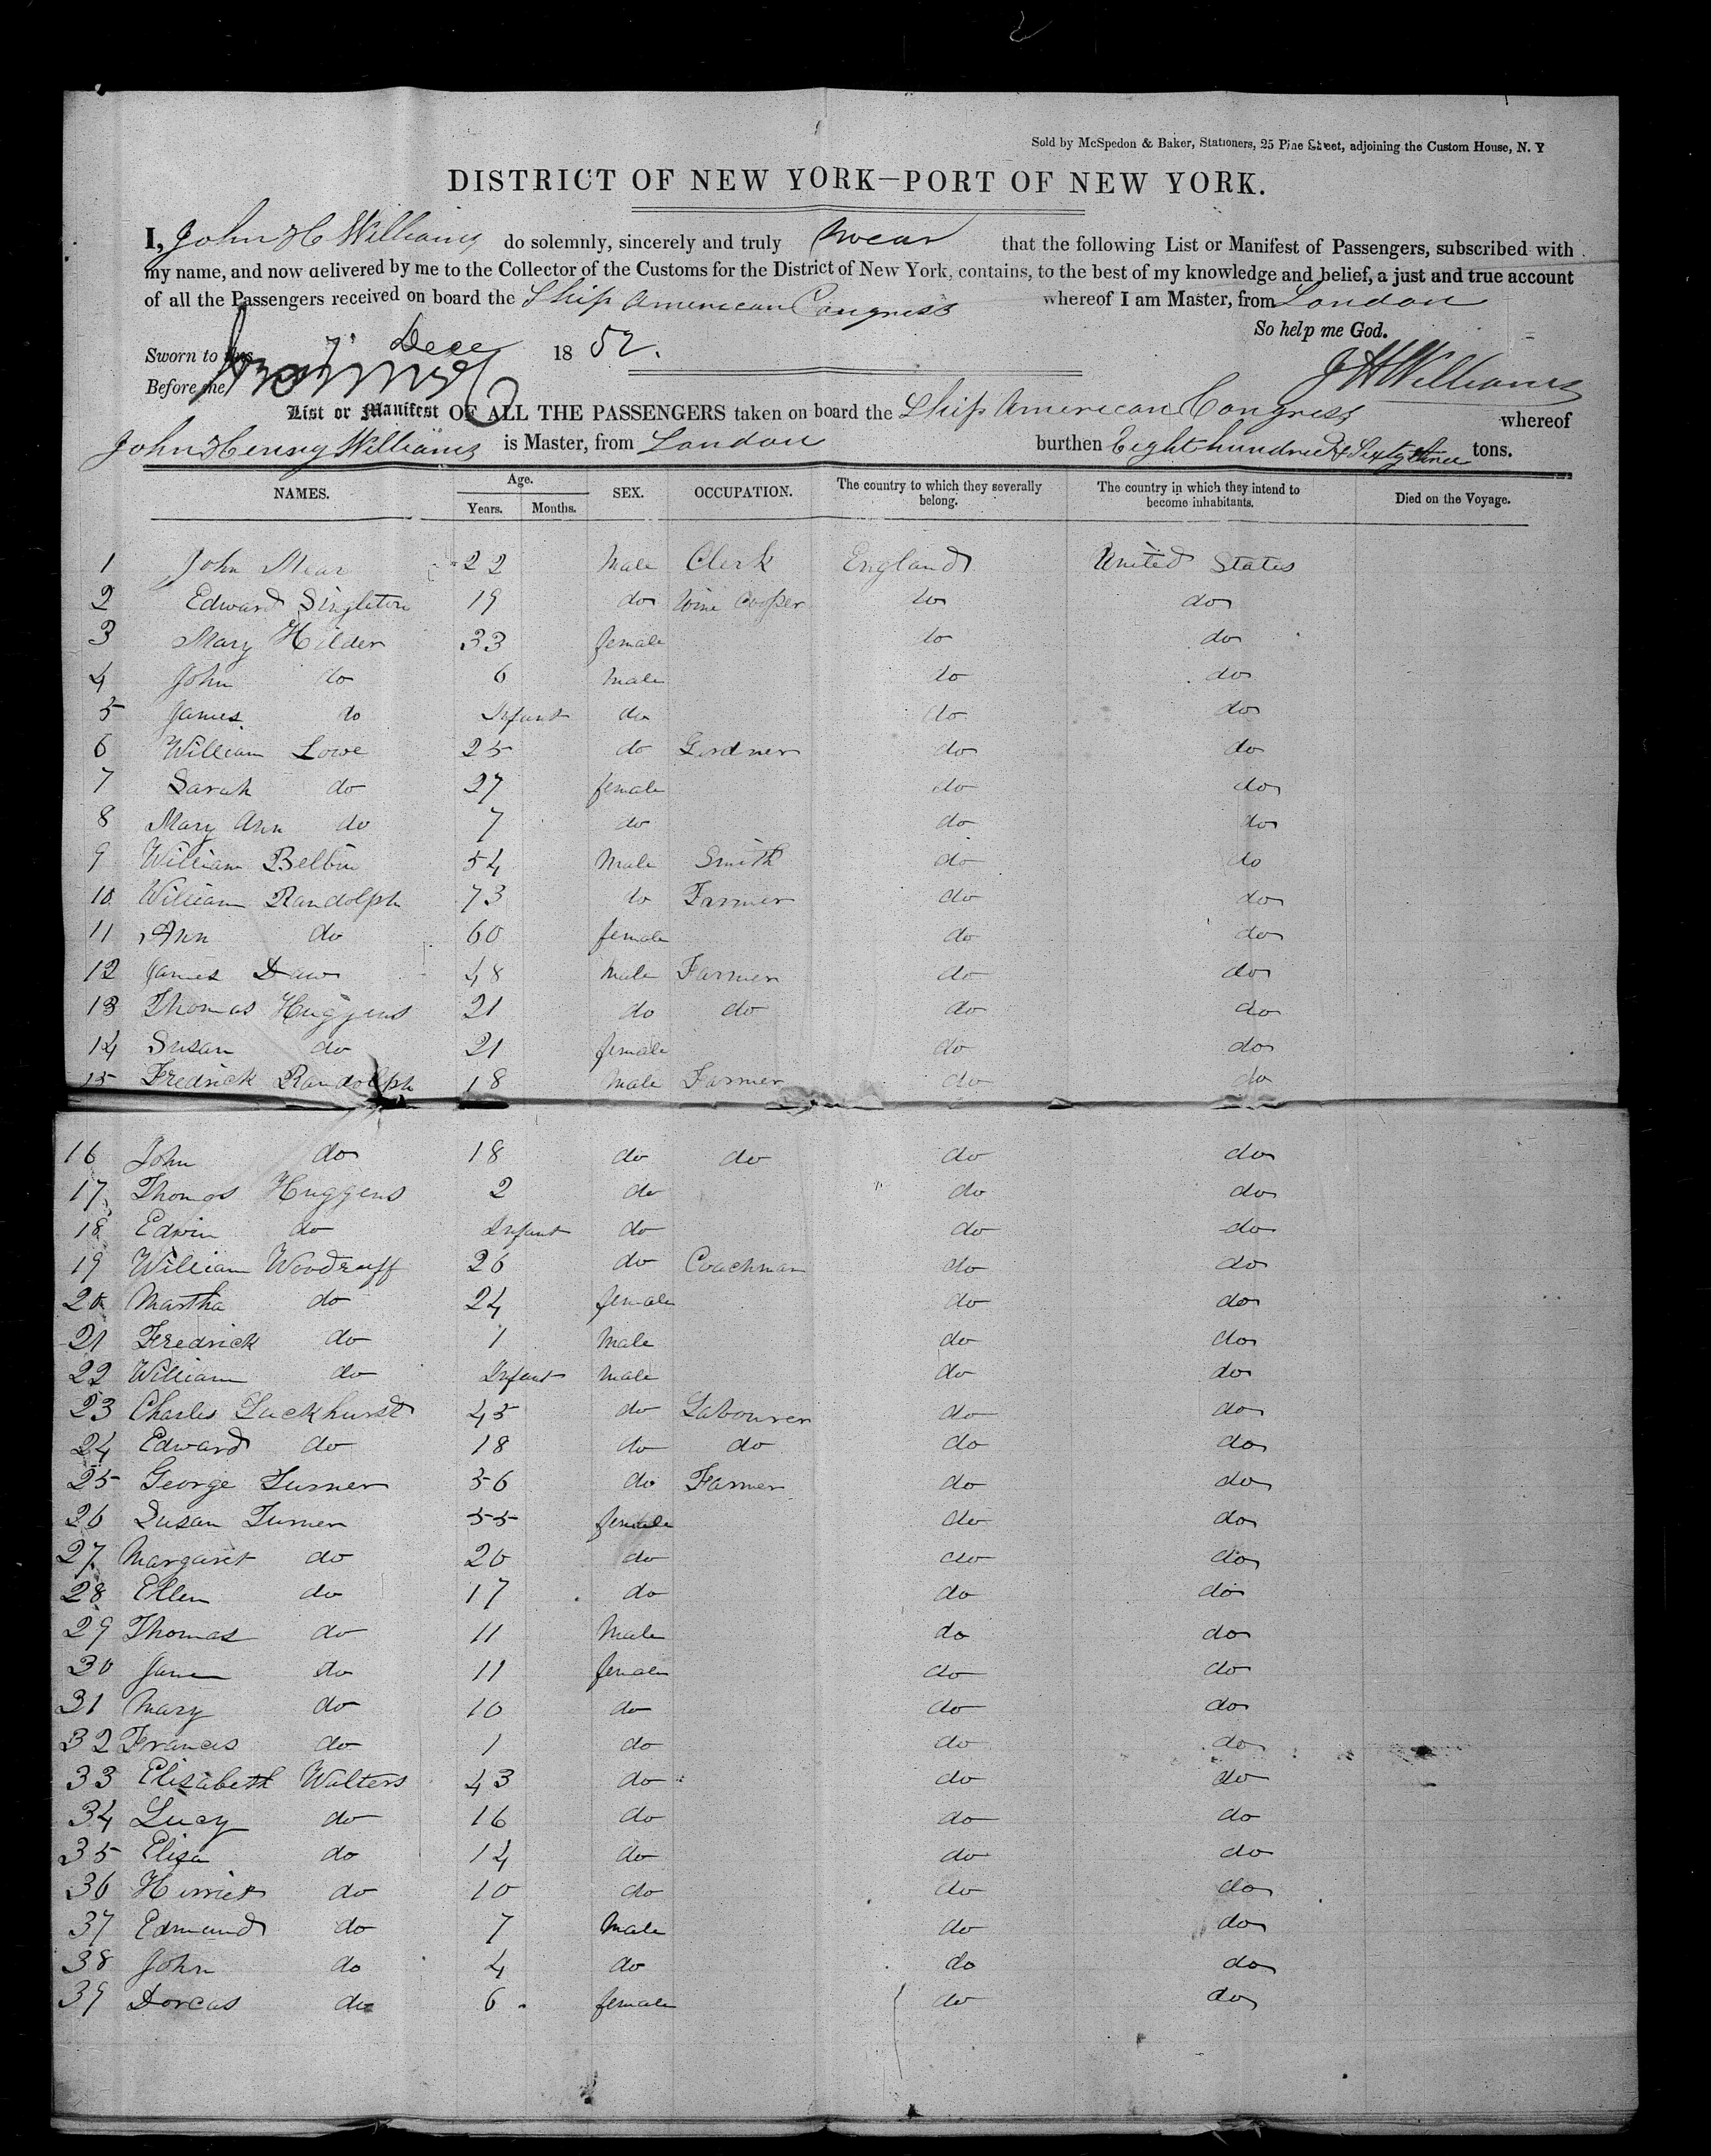 Sold by McSpedon & Baker, Stationers, 25 Pine Street, adjoining the Custom House, N. Y
DISTRICT OF NEW YORK—PORT OF NEW YORK.
I, John H Williams do solemnly, sincerely and truly swear that the following List or Manifest of Passengers, subscribed with
my name, and now delivered by me to the Collector of the Customs for the District of New York, contains, to the best of my knowledge and belief, a just and true account
of all the Passengers received on board the Ship American Congress whereof I am Master, from London
So help me God.
Sworn to this Dece 1852.
Before me, J H Williams
List or Manifest OF ALL THE PASSENGERS taken on board the Ship American Congress whereof
John Henry Williams is Master, from London burthen Eight hundred & Sixty three tons.
NAMES. Age. Years. Months. SEX. OCCUPATION. The country to which they severally belong. The country in which they intend to become inhabitants. Died on the Voyage.
1 John Mear 22 Male Clerk England United States
2 Edward Singleton 19 do Wine Cooper do do
3 Mary Hilder 33 female do do
4 John do 6 Male do do
5 James do Infant do do do
6 William Lowe 25 do Gardner do do
7 Sarah do 27 female do do
8 Mary Ann do 7 do do do
9 William Belbin 54 Male Smith do do
10 William Randolph 73 do Farmer do do
11 Ann do 60 female do do
12 James Daw 48 Male Farmer do do
13 Thomas Huggens 21 do do do do
14 Susan do 21 female do do
15 Fredrick Randolph 18 Male Farmer do do
16 John do 18 do do do do
17 Thomas Huggens 2 do do do
18 Edwin do Infant do do do
19 William Woodruff 26 do Coachman do do
20 Martha do 24 female do do
21 Fredrick do 1 Male do do
22 William do Infant Male do do
23 Charles Luckhurst 45 do Labourer do do
24 Edward do 18 do do do do
25 George Turner 56 do Farmer do do
26 Susan Turner 55 female do do
27 Margaret do 20 do do do
28 Ellen do 17 do do do
29 Thomas do 11 Male do do
30 Jane do 11 female do do
31 Mary do 10 do do do
32 Frances do 1 do do do
33 Elizabeth Walters 43 do do do
34 Lucy do 16 do do do
35 Eliza do 14 do do do
36 Herriet do 10 do do do
37 Edmund do 7 Male do do
38 John do 4 do do do
39 Dorcas do 6 female do do